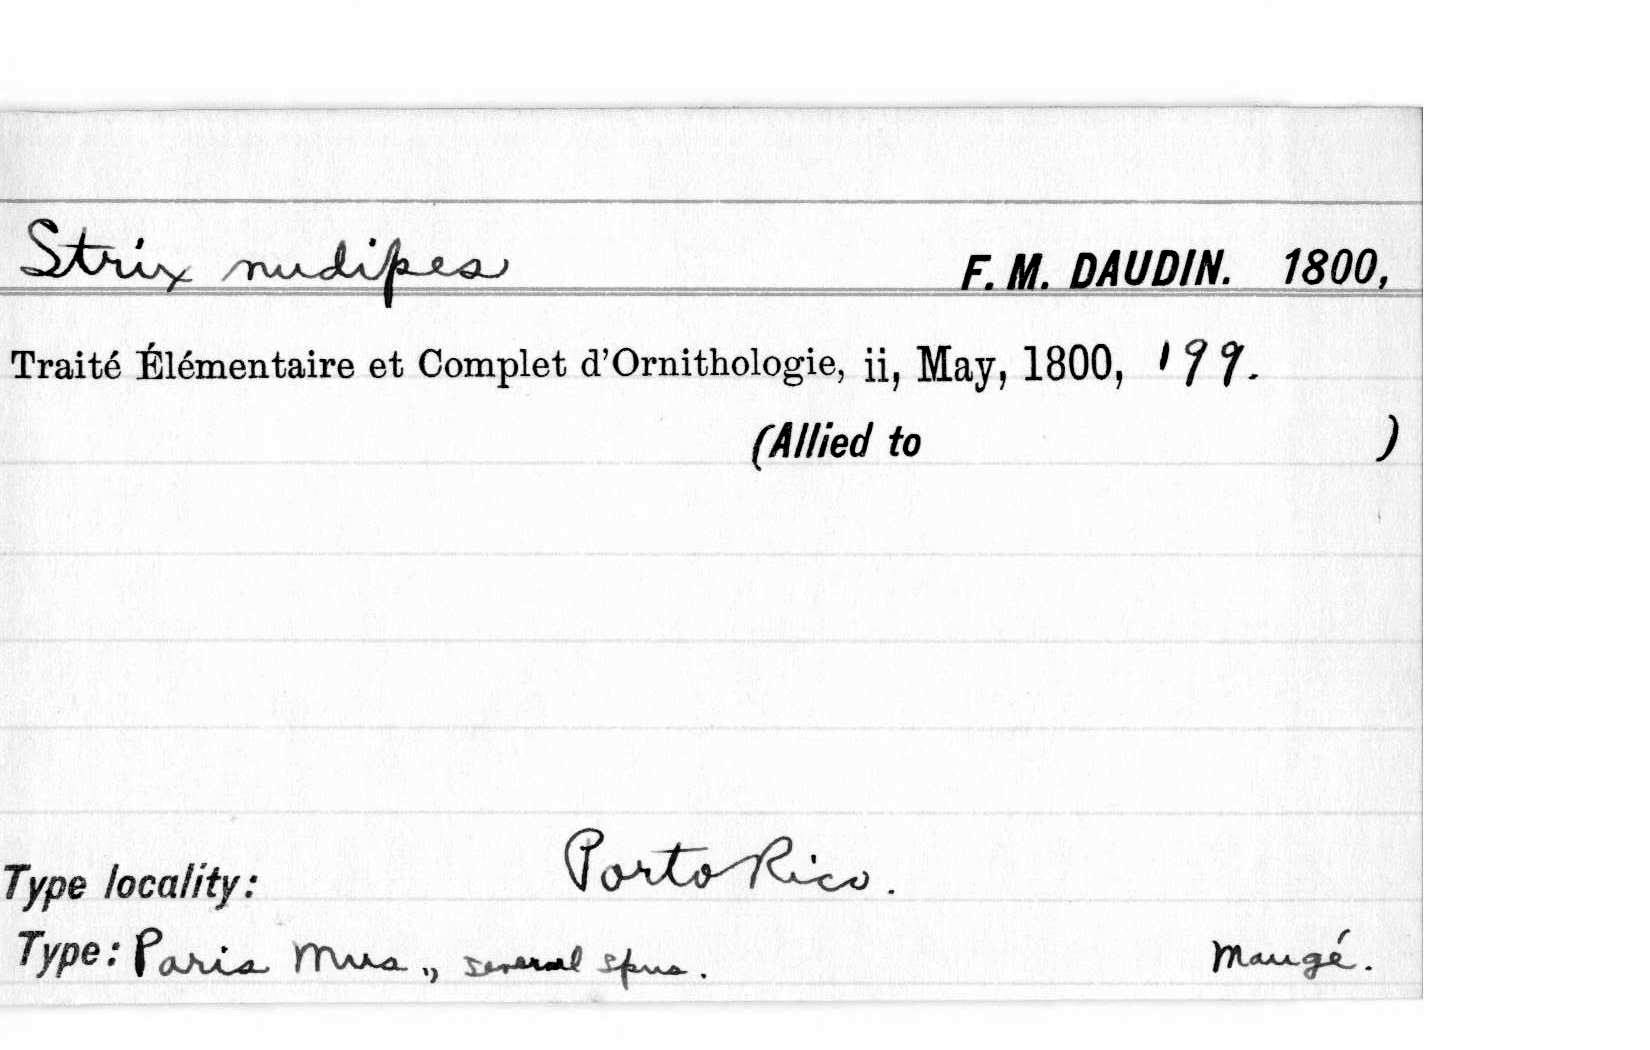 Strix nudipes F. M. DAUDIN. 1800,
Traité Élémentaire et Complet d'Ornithologie, ii, May, 1800, 199.
(Allied to )
Type locality: Porto Rico.
Type: Paris Mus., several spns. Maugé.